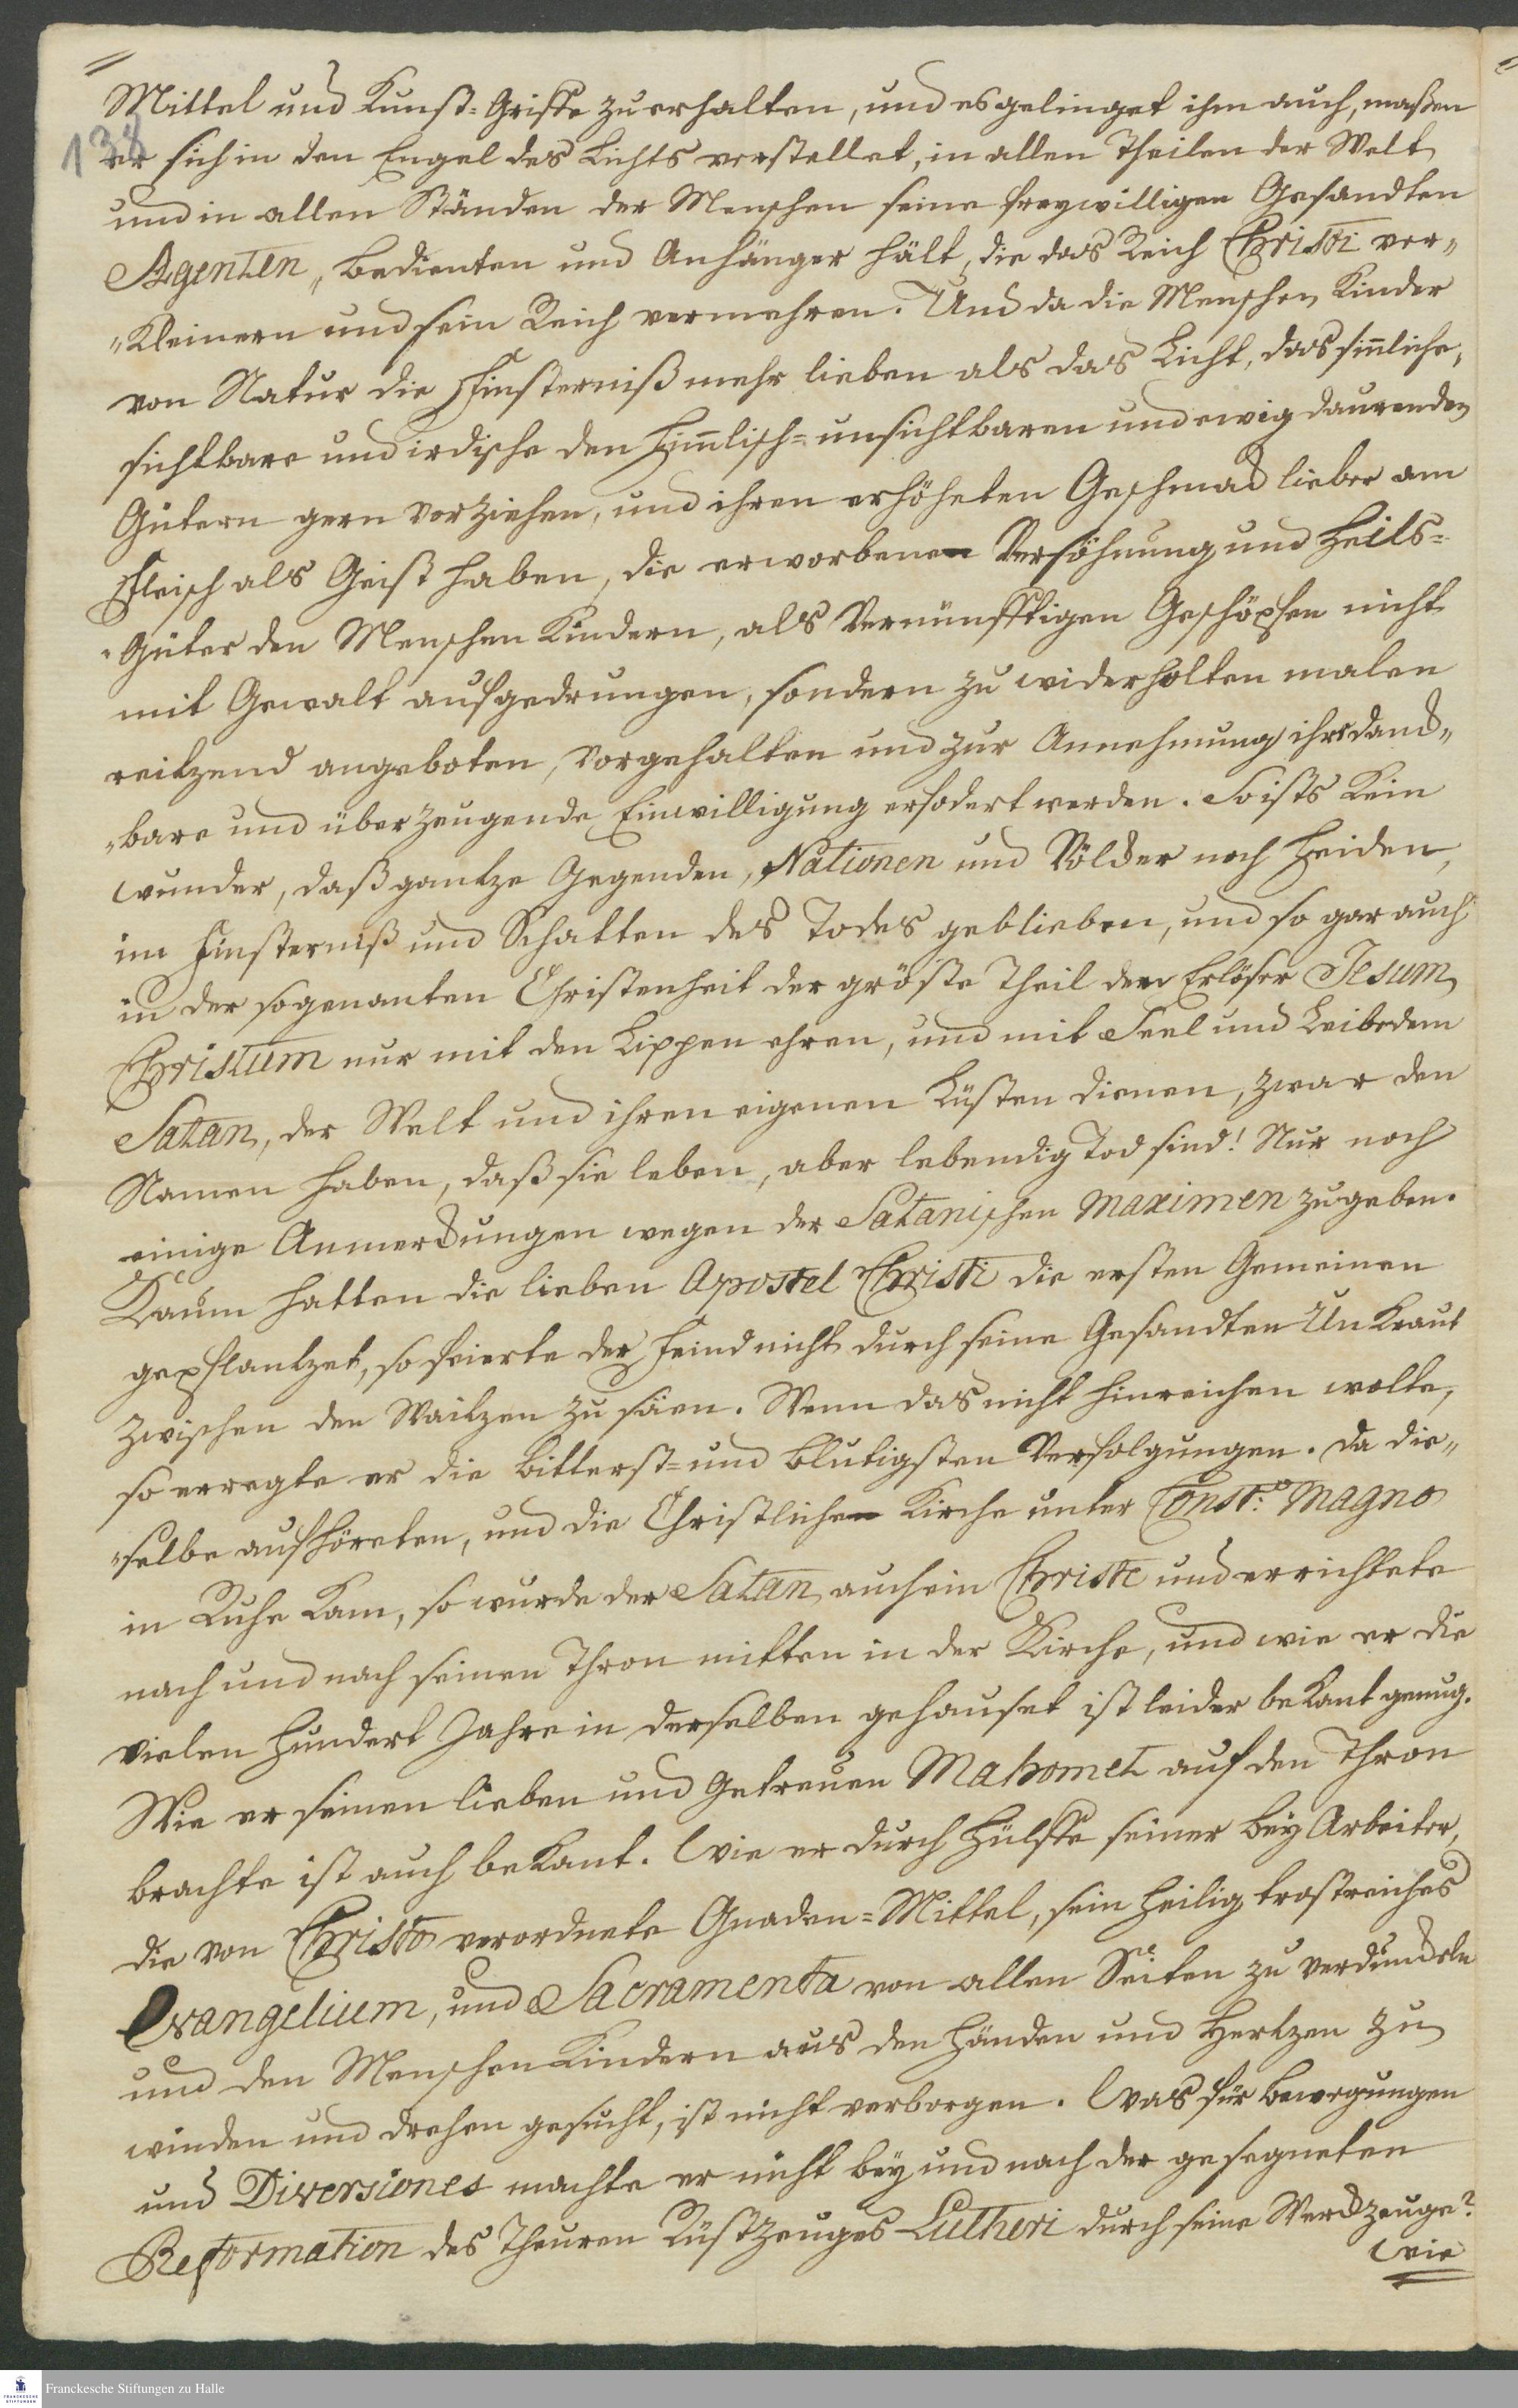 Mittel und Kunst=Griffe zuerhalten, und es gelinget ihm auch, maßen
138
er sich in den Engel des Lichts verstellet, in allen Theilen der Welt
und in allen Ständen der Menschen seine freywilligen Gesandten
Agenten, Bedienten und Anhänger hält, die das Reich Christi ver„
„Kleinern und sein Reich vermehren. Und da die Menschen Kinder
von Natur die Finsterniß mehr lieben als das Licht, das sinnliche,
sichtbare und irdische den Himlisch=unsichtbaren und ewig daurenden
Gütern gern vorziehen, und ihren erhöheten Geschmack lieber am
Fleisch als Geist haben, die erworbene Versöhnung und Heils=
„Güter den Menschen Kindern, als Vernünfftigen Geschöpfen nicht
mit Gewalt aufgedrungen, sondern zu widerholten malen
reitzend angeboten, vorgehalten und zur Annehmung ihr danck„
„bare und überzeugende Einwilligung erfodert werden. So ists Kein
wunder, daß gantze Gegenden, Nationen und Völcker noch Heiden,
im Finsterniß und Schatten des Todes geblieben, und so gar auch
in der sogenanten Christenheit der gröste Theil den Erlöser Jesum
Christum nur mit den Lippen ehren, und mit Seel und Leibe dem
Satan, der Welt und ihren eigenen Lüsten dienen, zwar den
Namen haben, daß sie leben, aber lebendig Tod sind! Nur noch
einige Anmerckungen wegen der Satanischen Maximen zugeben.
Kaum hatten die lieben Apostel Christi die ersten Gemeinen
gepflantzet, so feierte der Feind nicht durch seine Gesandten UnKraut
zwischen den Waitzen zu säen. Wenn das nicht hinreichen wolte,
so erregte er die bitterst=und blutigsten Verfolgungen. Da die„
„selbe aufhöreten, und die Christliche Kirche unter Const:o Magno
in Ruhe Kam, so wurde der Satan auch ein Christ und errichtete
nach und nach seinen Thron mitten in der Kirche, und wie er die
vielen hundert Jahre in derselben gehauset ist leider beKant genug.
Wie er seinen lieben und Getreuen Mahomet auf den Thron
brachte ist auch beKant. Wie er durch Hülffe seiner bey Arbeiter,
die von Christo verordnete Gnaden=Mittel, sein heilig trostreiches
Evangelium, und Sacramenta von allen Seiten zu verdunckeln
und den Menschen Kindern aus den Händen und Hertzen zu
winden und drehen gesucht, ist nicht verborgen. Was für bewegungen
und Diversiones machte er nicht bey und nach der gesegneten
Reformation des Theuren Rüstzeuges Lutheri durch seine Werckzeuge?
Wie
FRANCKESCHE STIFTUNGEN
Franckesche Stiftungen zu Halle